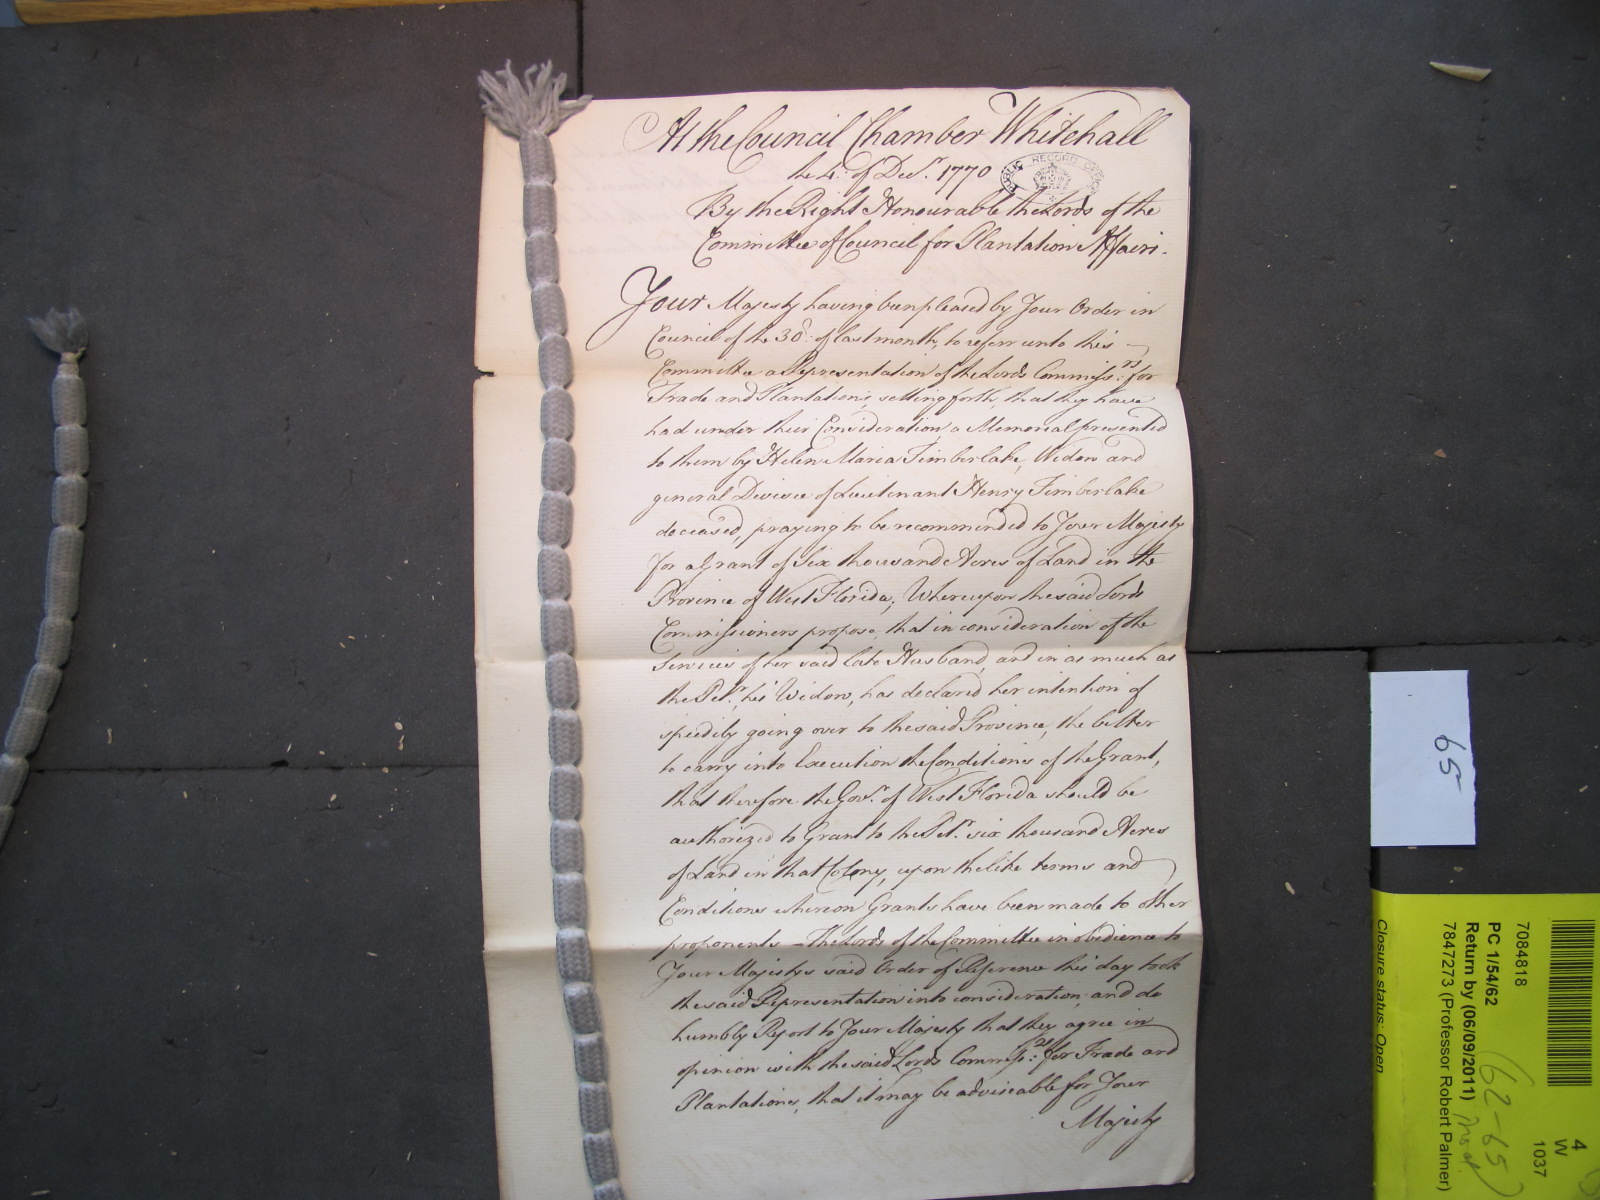 At the Council Chamber Whitehall
the 4.th of Decr. 1770
PUBLIC RECORD OFFICE
By the Right Honourable the Lords of the
Committee of Council for Plantation Affairs.
Your Majesty having been pleased by Your Order in
Council of the 30th. of last month, to referr unto this
Committee a Representation of the Lords Commissrs. for
Trade and Plantations, setting forth, that they have
had under their Consideration, a Memorial presented
to them by Helen Maria Timberlake, Widow and
general Devisee of Lieutenant Henry Timberlake
deceased, praying to be recommended to Your Majesty
for a Grant of Six thousand Acres of Land in the
Province of West Florida; Whereupon the said Lords
Commissioners propose, that in consideration of the
Services of her said late Husband, and in as much as
the Petr. his Widow, has declared her intention of
speedily going over to the said Province, the better
to carry into Execution the Conditions of the Grant,
that therefore the Govr. of West Florida should be
authorized to Grant to the Petr. six thousand Acres
of Land in that Colony, upon the like terms and
Conditions whereon Grants have been made to other
proponents – The Lords of the Committee in obedience to
Your Majestys said Order of Reference this day took
the said Representation into consideration, and do
humbly Report to Your Majesty that they agree in
opinion with the said Lords Commissrs. for Trade and
Plantations, that it may be adviseable for Your
Majesty
65
7084818
PC 1/54/62
Return by (06/09/2011)
7847273 (Professor Robert Palmer)
Closure status: Open
4
W
1037
62-65